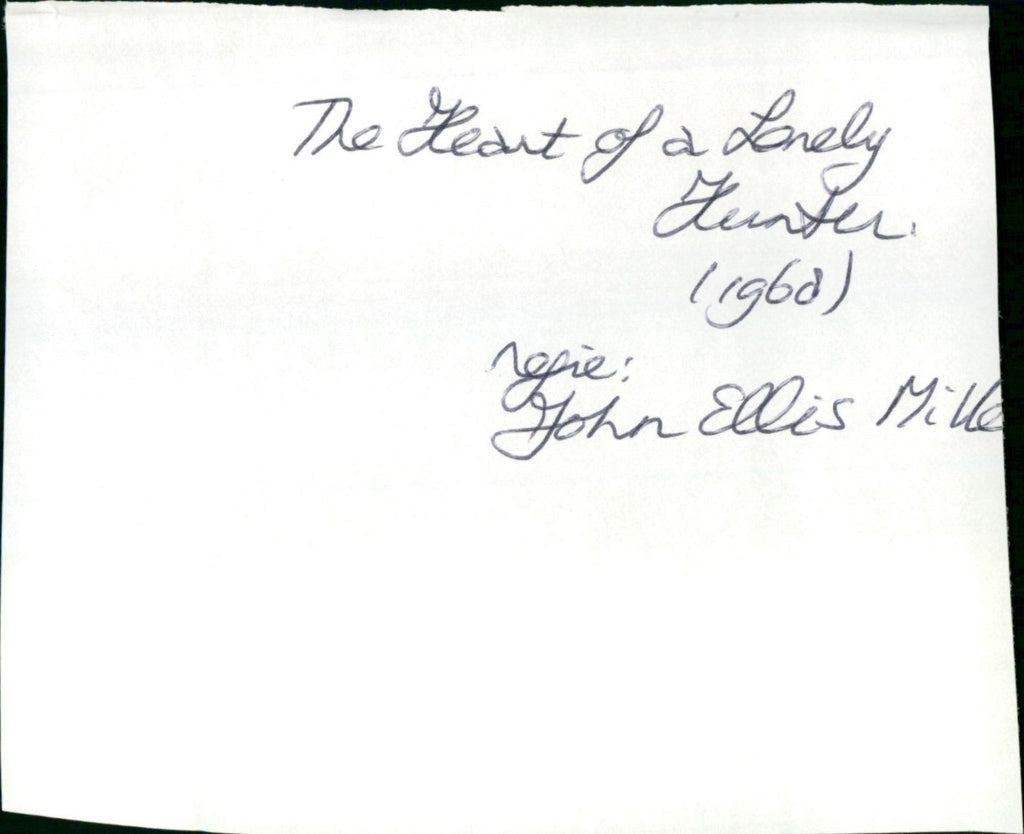 The Heart of a Lonely
Hunter.
(1968)
regie:
John Ellis Mille